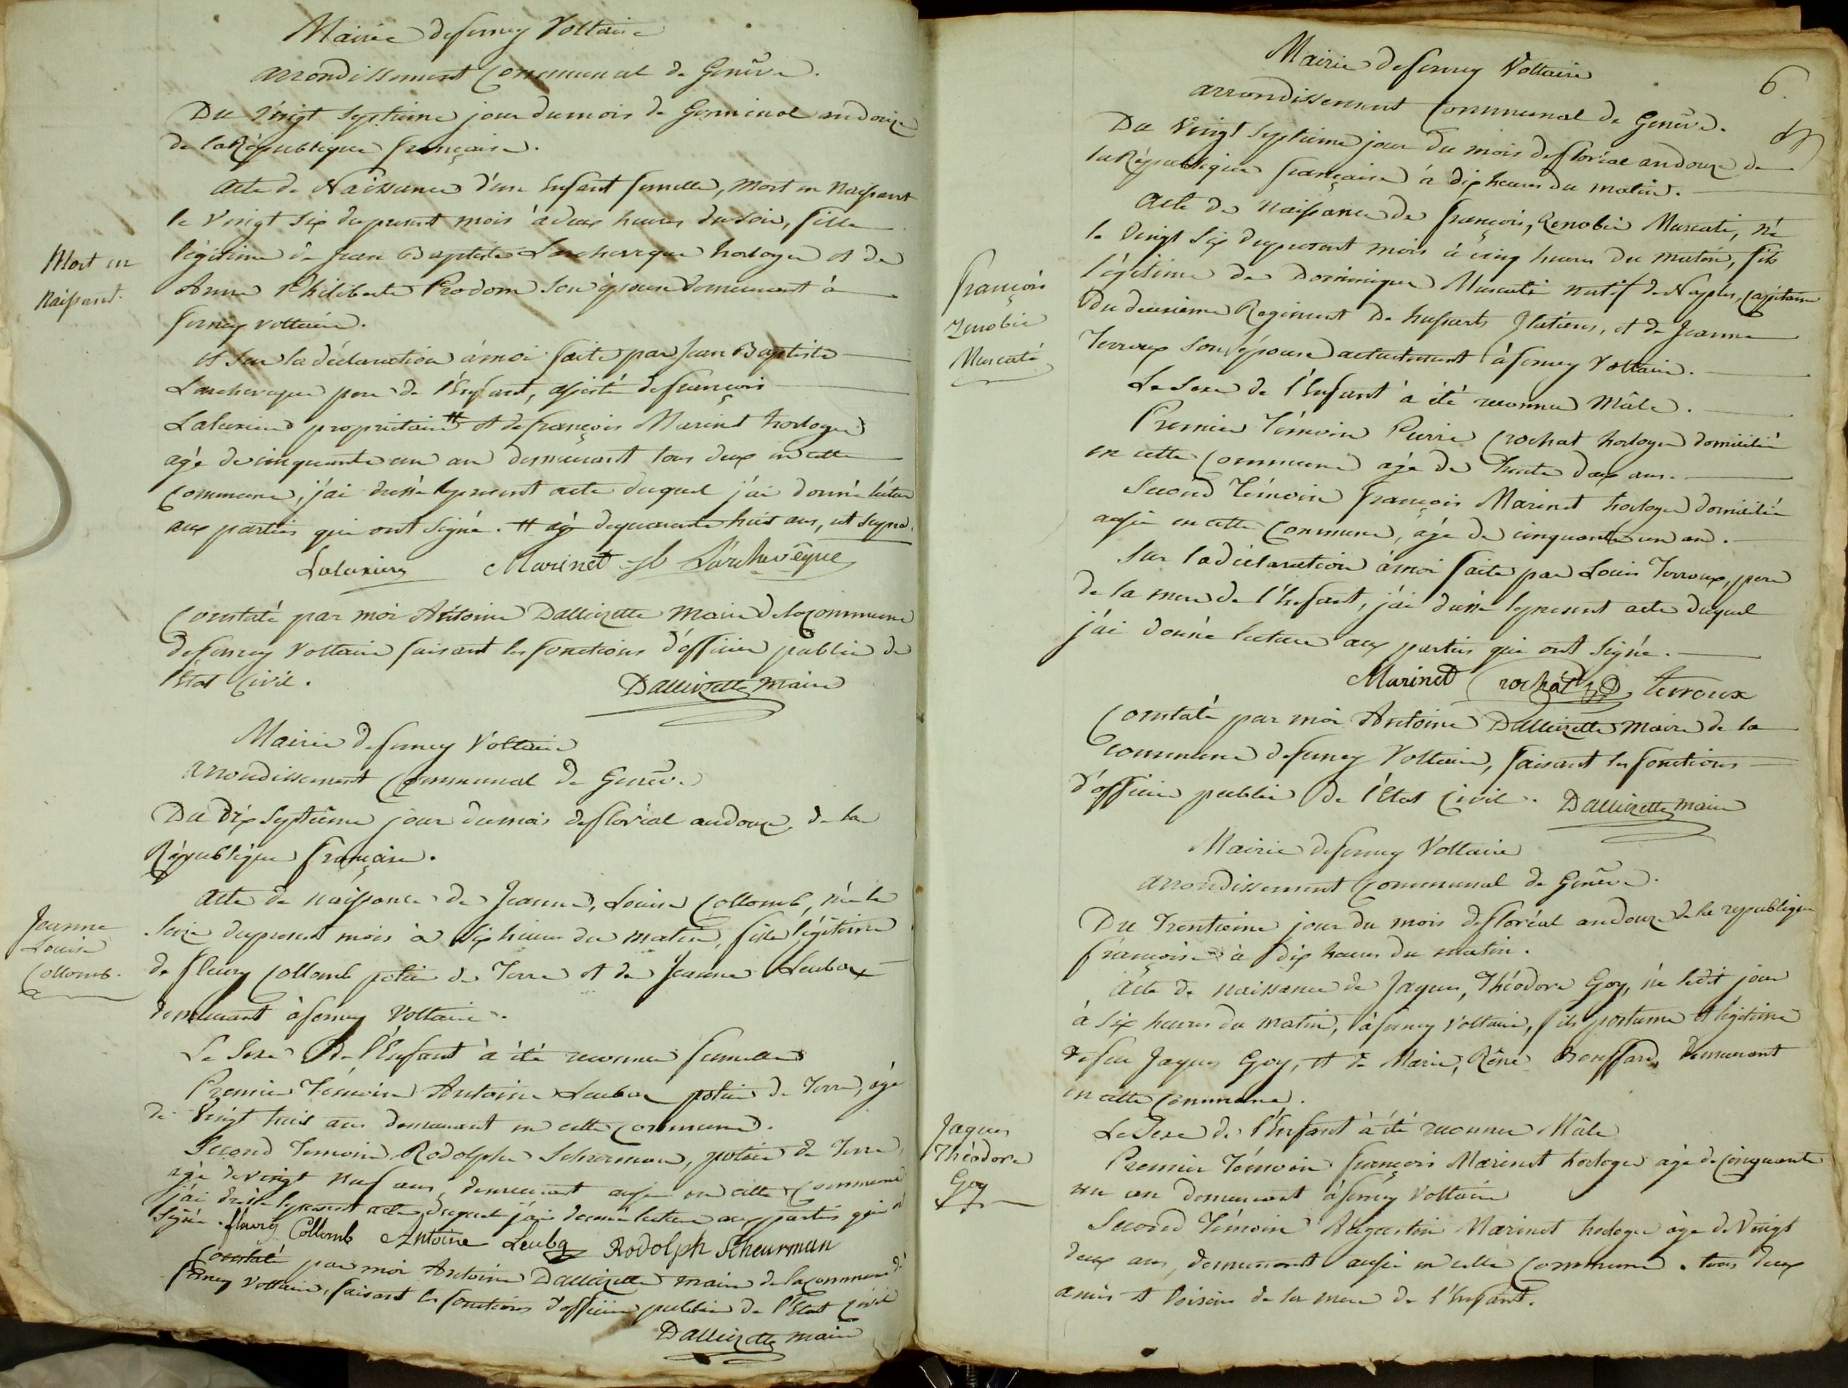 Mairie de ferney Voltaire
arrondissement Communal de Genêve.
Du Vingt Septieme jour du mois de Germinal an douze
de la République française.
Acte de Naissance d'un Enfant femelle, mort en Naissant
le Vingt Six du present mois à deux heures du Soir, fille
légitime de Jean Baptiste Larcheveque horloger et de
Anne Philiberte Prodom Son épouse demeurant à
ferney voltaire.
Mort en
Naissant.
et Sur la déclaration à moi faite par Jean Baptiste
Larcheveque pere de l'Enfant, assisté de françois
proprietaire # et de françois Marinet horloger
agé de cinquante un an demeurant tous deux en cette
Commune, j'ai dressé le present acte duquel j'ai donné lecture
aux parties qui ont signé. # agé de quarante huit ans, ut supra.
Marinet Jb Larchevêque
Constaté par moi Antoine Dallizette Maire de la Commune
de ferney Voltaire faisant les fonctions d'officier public de
l'état Civil. Dallizette maire
Mairie de ferney Voltaire
arrondissement Communal de Genêve.
Du dix Septième jour du mois de floréal an douze, de la
République française.
Acte de naissance de Jeanne, Louise Collomb, née le
Seize du present mois à Six heures du matin, fille légitime
de fleury Collomb potier de Terre et de Jeanne Leuba
demeurant à ferney Voltaire.
Jeanne
Louise
Collomb.
Le Sexe de l'Enfant à été reconnu femelle
Premier Témoin Antoine Leuba potier de Terre, agé
de Vingt huit ans demeurant en cette Commune.
Second Temoin Rodolphe Scherman, potier de Terre,
agé de vingt neuf ans, demeurant aussi en cette Commune
j'ai dressé le present acte duquel j'ai donné lecture aux parties qui ont
Signé. fleury Collomb Antoine Leuba Rodolph Scheurman
Constaté par moi Antoine Dallizette maire de la commune de
ferney Voltaire, faisant les fonctions d'officier public de l'Etat Civil
Dallizette maire
6.
Mairie de ferney Voltaire
arrondissement Communal de Genêve.
Du Vingt Septieme jour du mois de floréal an douze de
la République française à dix heures du matin.
Acte de naissance de françois, Zenobie Muscati, né
le Vingt Six du present mois à cinq heures du matin, fils
légitime de Dominique Muscati natif de Naples, Capitaine
du deuxieme Regiment de hussards Italiens, et de Jeanne
Terroux Son épouse actuelement à ferney Voltaire.
françois
Zenobie
Muscati
Le Sexe de l'Enfant à été reconnu Mâle.
Premier Témoin Pierre Crochat horloger domicilié
en cette Commune agé de Trente deux ans.
Second Témoin françois Marinet horloger domicilié
aussi en cette Commune, agé de cinquante un an.
Sur la déclaration à moi faite par Louis Terroux, pere
de la mere de l'Enfant, j'ai dressé le present acte duquel
j'ai donné lecture aux parties qui ont Signé.
Marinet Crochat Terroux
Constaté par moi Antoine Dallizette maire de la
Commune de ferney Voltaire, faisant les fonctions
d'officier public de l'Etat Civil. Dallizette maire
Mairie de ferney Voltaire
arrondissement Communal de Genêve.
Du Trentieme jour du mois de floréal an douze de la republique
françoise à dix heures du matin.
Acte de naissance de Jaques, Théodore Goy, né ledit jour
à Six heures du matin, à ferney Voltaire, fils postume et légitime
de feu Jaques Goy, et de Marie, Réné Bouffard demeurant
en cette Commune.
Jaques
Théodore
Goy
Le Sexe de l'Enfant à été reconnu Mâle
Premier Témoin françois Marinet horloger agé de Cinquante
un an demeurant à ferney Voltaire
Second Témoin Augustin Marinet horloger agé de Vingt
deux ans, demeurant aussi en cette Commune. tous deux
amis et Voisins de la mere de l'Enfant.